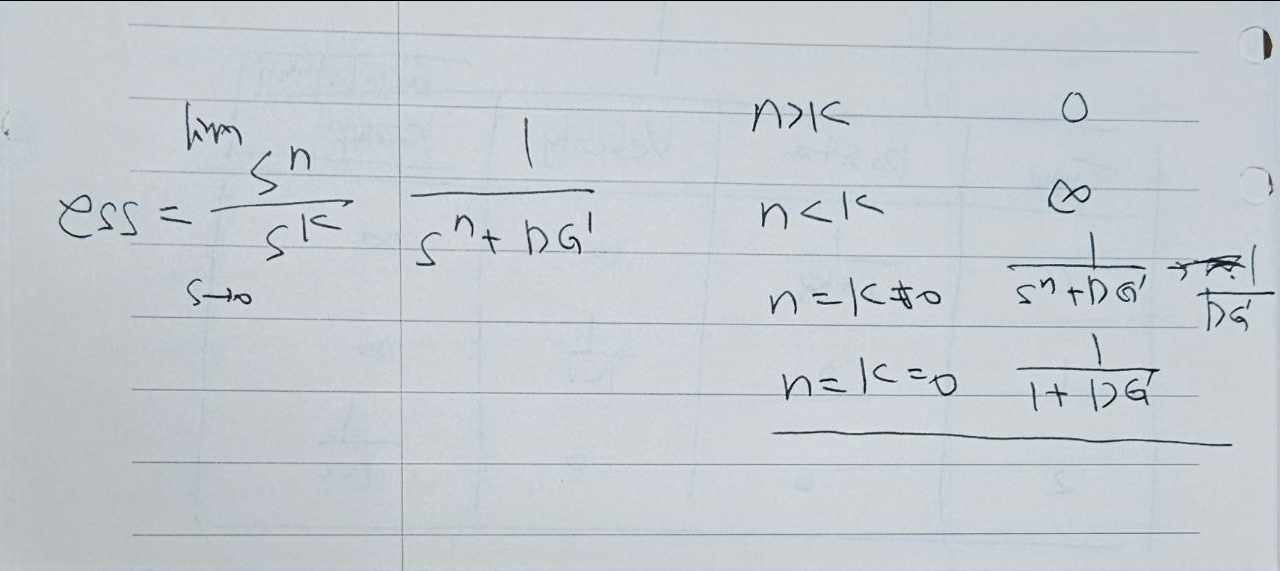 lim
ess = s^n / s^k · 1 / (s^n + DG')
s→0
n>k 0
n<k ∞
n=k≠0 1 / (s^n + DG') → 1 / DG'
n=k=0 1 / (1 + DG')